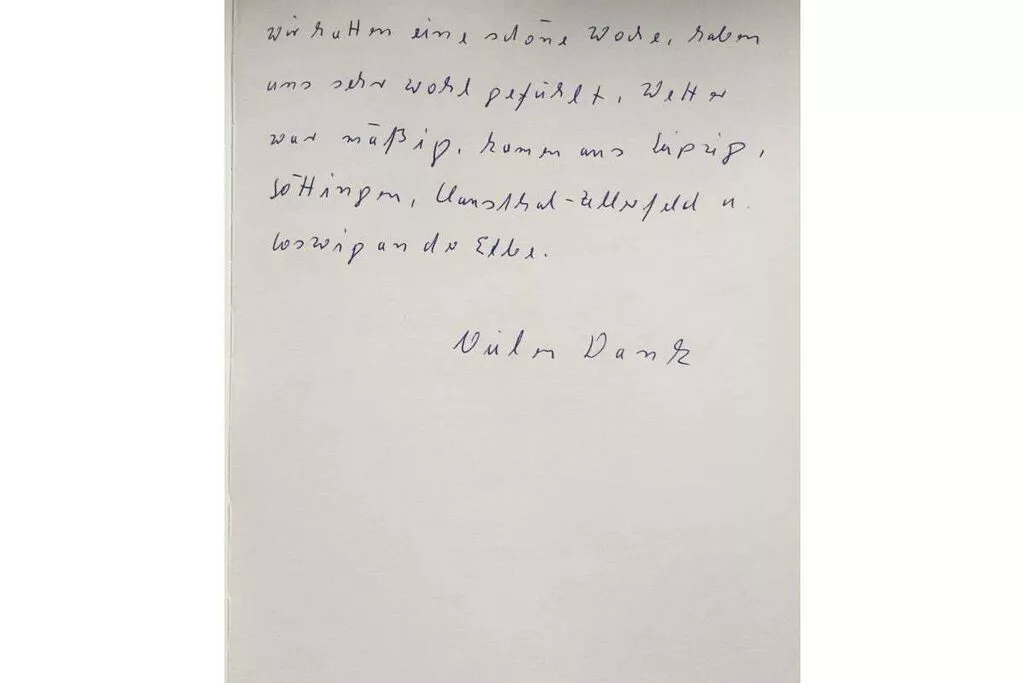 wir hatten eine schöne Woche, haben
uns sehr wohl gefühlt. Wetter
war mäßig, kamen aus Leipzig,
Göttingen, Clausthal-Zellerfeld u.
Coswig an der Elbe.
Vielen Dank